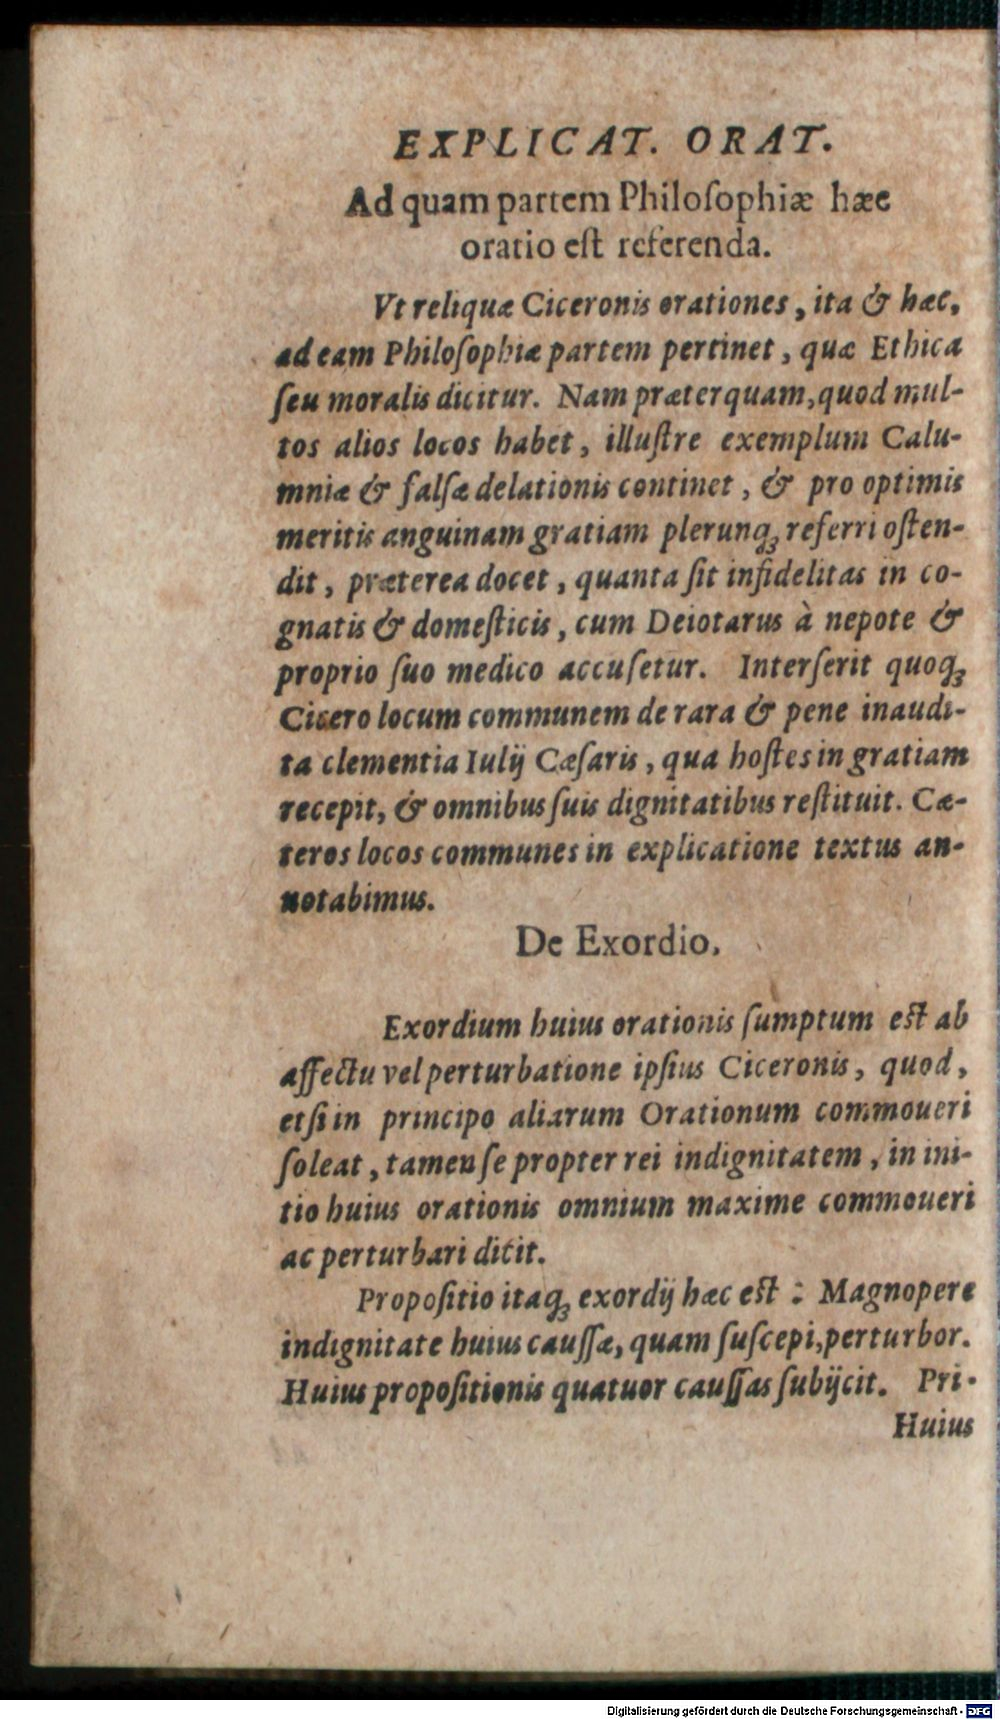 EXPLICAT. ORAT.
Ad quam partem Philoſophiæ hæc
oratio eſt referenda.
Vt reliquæ Ciceronis orationes, ita & hæc,
ad eam Philoſophiæ partem pertinet, quæ Ethica
ſeu moralis dicitur. Nam præterquam, quod mul-
tos alios locos habet, illuſtre exemplum Calu-
mniæ & falſæ delationis continet, & pro optimis
meritis anguinam gratiam plerunq; referri oſten-
dit, præterea docet, quanta ſit infidelitas in co-
gnatis & domeſticis, cum Deiotarus à nepote &
proprio ſuo medico accuſetur. Interſerit quoq;
Cicero locum communem de rara & pene inaudi-
ta clementia Iulij Cæſaris, qua hoſtes in gratiam
recepit, & omnibus ſuis dignitatibus reſtituit. Cæ-
teros locos communes in explicatione textus an-
notabimus.
De Exordio.
Exordium huius orationis ſumptum eſt ab
affectu vel perturbatione ipſius Ciceronis, quod,
etſi in principo aliarum Orationum commoueri
ſoleat, tamen ſe propter rei indignitatem, in ini-
tio huius orationis omnium maxime commoueri
ac perturbari dicit.
Propoſitio itaq; exordij hæc eſt: Magnopere
indignitate huius cauſſæ, quam ſuſcepi, perturbor.
Huius propoſitionis quatuor cauſſas ſubijcit. Pri-
Huius
Digitalisierung gefördert durch die Deutsche Forschungsgemeinschaft - DFG